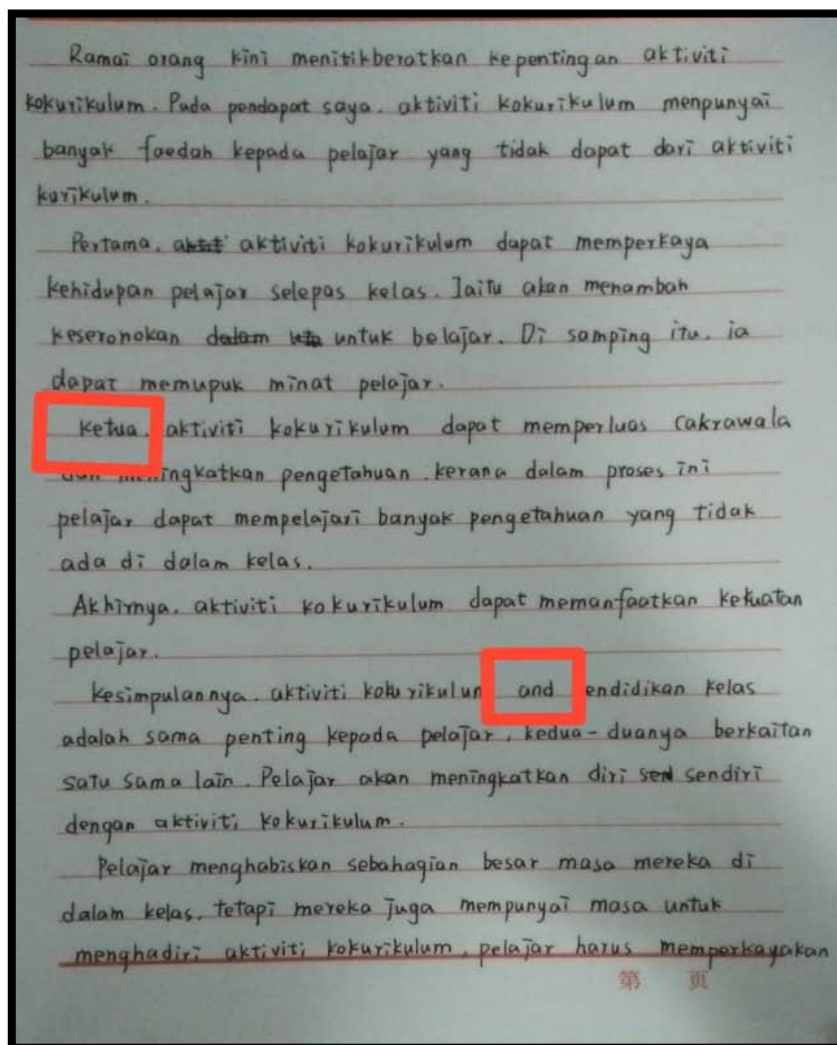 Ramai orang kini menitikberatkan kepentingan aktiviti
kokurikulum. Pada pendapat saya. aktiviti kokurikulum menpunyai
banyak faedah kepada pelajar yang tidak dapat dari aktiviti
kurikulum.
Pertama. aktiviti kokurikulum dapat memperkaya
kehidupan pelajar selepas kelas. Iaitu akan menambah
keseronokan untuk belajar. Di samping itu. ia
dapat memupuk minat pelajar.
Ketua. aktiviti kokurikulum dapat memperluas cakrawala
dan meningkatkan pengetahuan. kerana dalam proses ini
pelajar dapat mempelajari banyak pengetahuan yang tidak
ada di dalam kelas.
Akhirnya. aktiviti kokurikulum dapat memanfaatkan kekuatan
pelajar.
Kesimpulannya. aktiviti kokurikulum and endidikan kelas
adalah sama penting kepada pelajar, kedua-duanya berkaitan
satu sama lain. Pelajar akan meningkatkan diri sendiri
dengan aktiviti kokurikulum.
Pelajar menghabiskan sebahagian besar masa mereka di
dalam kelas. tetapi mereka juga mempunyai masa untuk
menghadiri aktiviti kokurikulum, pelajar harus memperkayakan
第 页